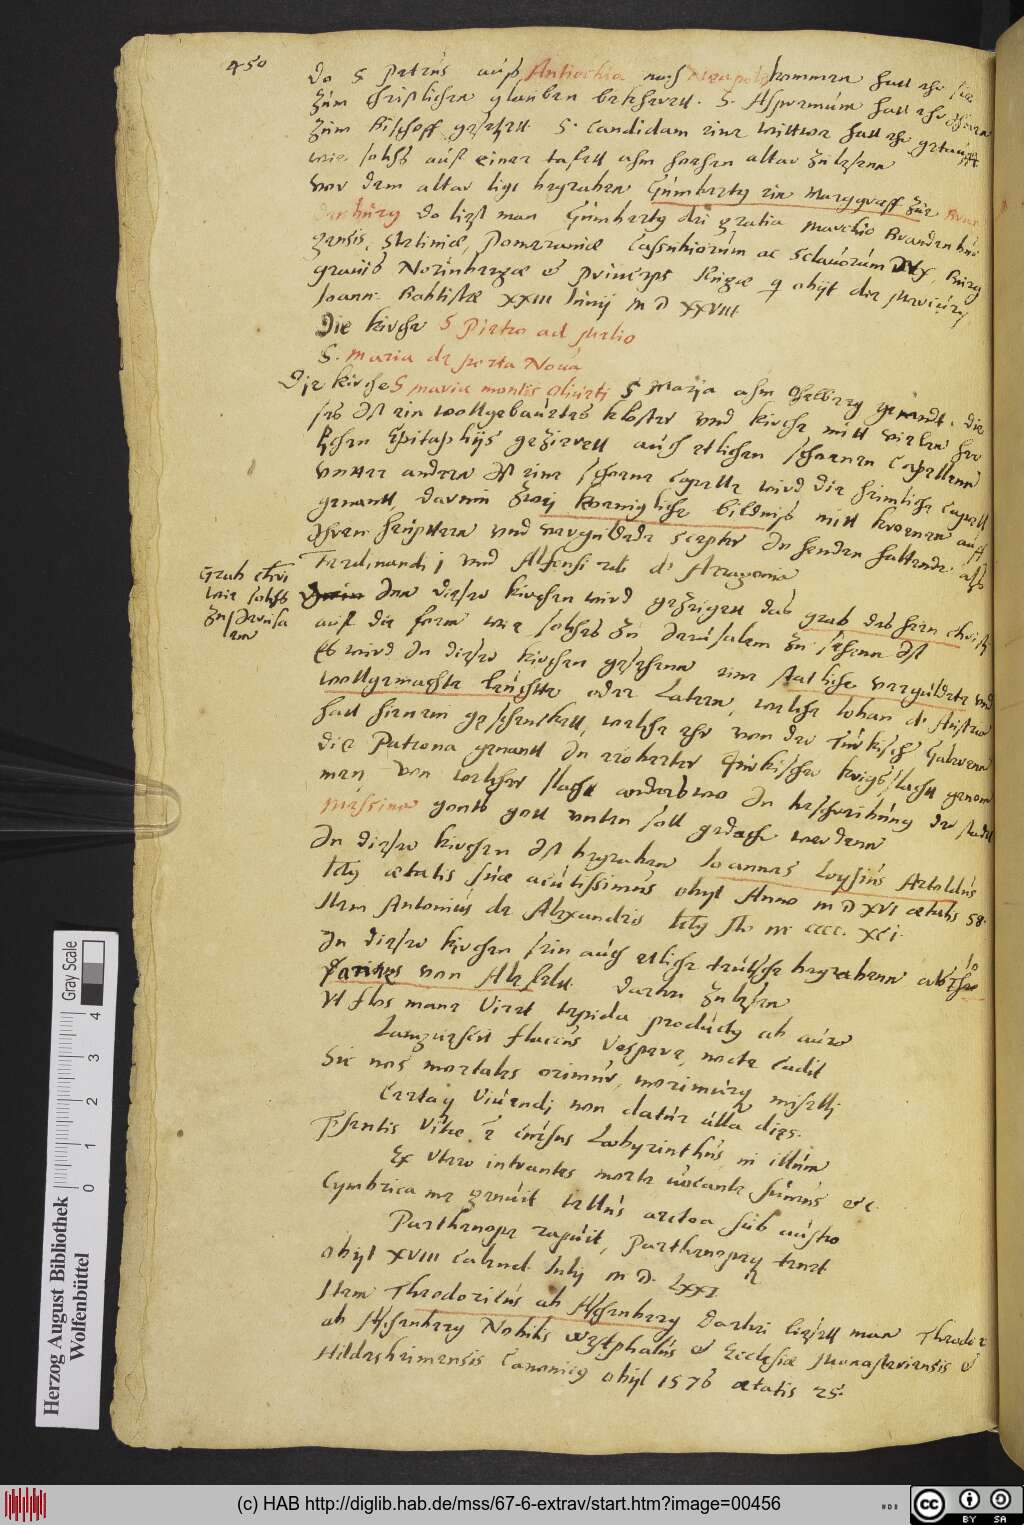 450
Da S Petrus auß Antiochia nach Neapolis kommen hatt ehr sie
zum christlichen glauben bekherett. S. Aspremum hatt ehr ihnen
zum Bischoff gesetzett. S. Candidam eine wittwe hatt ehr getaufft
wie solchs auß einer tafell ahm hohen altar zu lesenn
vor dem altar ligt begraben Gumberty ein Marggraff zue Bran
denburg Da liest man Gumberty dei gratia Marchio Brandenbur
gensis, Stetiniæ, Pomeraniæ Cassubiorum ac Sclavorum Dux, Burg
gravius Norinbergæ & princeps Rugæ q obijt die
Joann. Babtistæ XXIII Junij M D XXVIII
Die kirche S Pietro ad
S. Maria de porta Nova
Die kirche S Maria montis Oliveti S Maria ahm Oelberg genandt. Die
ses Ist ein wollgebautes kloster und kirche mitt vielen her
lichen Epitaphijs gezierett auch etlichen schoenen Capellenn
unnter andern Ist eine schoene Capelle wird die heimliche Capell
genantt darinn zwej koenigliche bildnis mitt kroenen auff
Ihren heupttern und verguldede Scepter In henden haltende als
Ferdinandi j und Alfonsi rati de Arragonia
Grab Chri
wie solchs
zu Jerusa
lem
Inn dieser kirchen wird gezeigett das grab des hern Christi
auff die form wie solches zu Jerusalem zu sehenn Ist
Es wird In dieser kirchen gesehenn eine statliche vergüldete und
wollgemachte leuchtte oder Latern, welche Johan de Austria
hatt hierein geschenckett, welche ehr von der Türkisch Galerenn
die Patrona genantt In eroberter Türkischer krigs slacht genom
men, von welcher slacht anderswo In beschreibung der stadt
Messina gonts gott unten soll gedacht werdenn
In dieser kirchen Ist begraben Joannes Loysius Artoldus
ætatis suæ acutissimus obyt Anno M D XVI ætatis 58.
Item Antonius de Alexandro M CCCC. XCI.
In dieser kirchen sein auch etliche teutsche begrabenn als
von Alefelt. Darbei zu lesen
Ut flos mane viret tepido productus ab auro
Languescit flaccus vespere, nocte cadit
Sic nos mortales orimur, morimurq miselli
Certaq vivendi non datur ulla dies.
Labyrinthus, in illum
Ex utero intrantes morte vocante sumus &c.
Cymbrica me genuit tellus arctoa sub austro
Parthenope rapuit, Parthenopeq tenet
obijt XVIII Calend. Julij M D. LXXI
Item Theodoricus ab Ascenberg Darbei liesett man Theodor
ab Ascenberg Nobilis Westphalus & Ecclesiæ Monasteriensis &
Hildesheimensis Canonicus obijt 1576 ætatis 25.
Herzog August Bibliothek
Wolfenbüttel
Gray Scale
0 1 2 3 4
(c) HAB http://diglib.hab.de/mss/67-6-extrav/start.htm?image=00456
cc BY SA